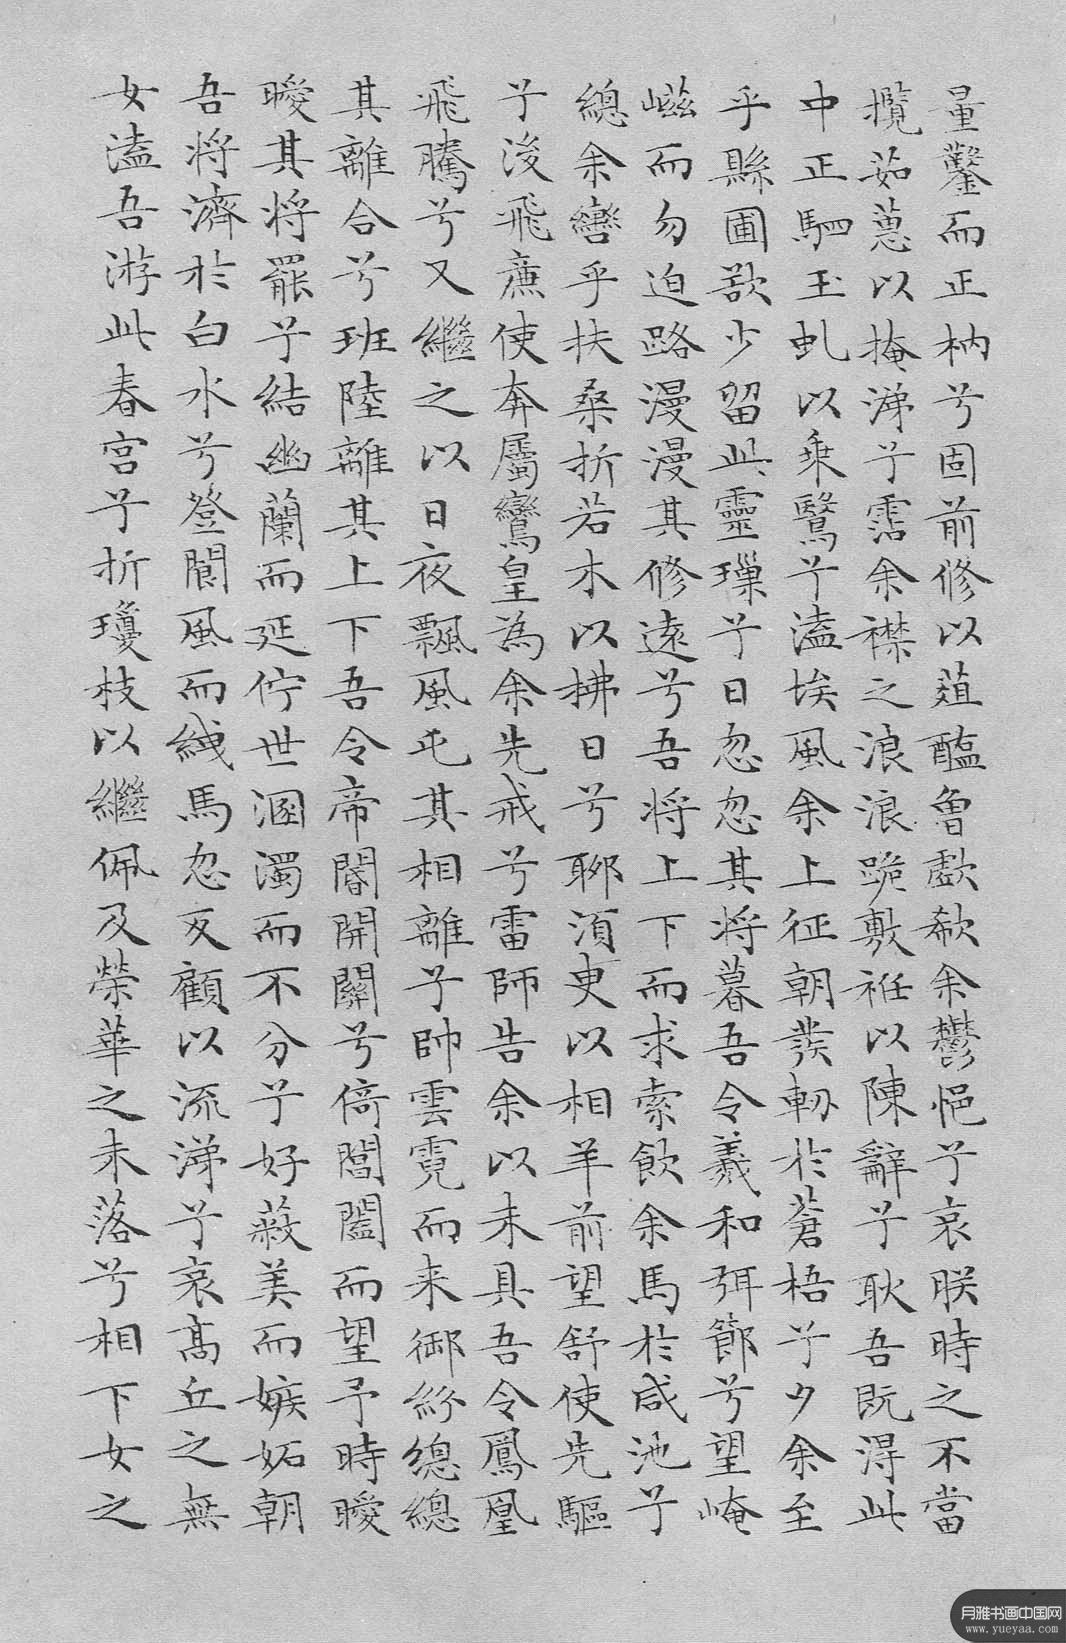 量鑿而正枘兮固前修以菹醢曾歔欷余鬱悒兮哀朕時之不當
攬茹蕙以掩涕兮霑余襟之浪浪跪敷衽以陳辭兮耿吾既得此
中正駟玉虬以乗鷖兮溘埃風余上征朝發軔於蒼梧兮夕余至
乎縣圃欲少留此靈璅兮日忽忽其將暮吾令羲和弭節兮望崦
嵫而勿迫路漫漫其修遠兮吾將上下而求索飲余馬於咸池兮
總余轡乎扶桑折若木以拂日兮聊須臾以相羊前望舒使先驅
兮後飛廉使奔屬鸞皇為余先戒兮雷師告余以未具吾令鳳凰
飛騰兮又繼之以日夜飄風屯其相離兮帥雲霓而来御紛總總
其離合兮班陸離其上下吾令帝閽開關兮倚閶闔而望予時曖
曖其將罷兮結幽蘭而延佇世溷濁而不分兮好蔽美而嫉妬朝
吾將濟於白水兮登閬風而緤馬忽反顧以流涕兮哀高丘之無
女溘吾游此春宮兮折瓊枝以繼佩及榮華之未落兮相下女之
月雅书画中国网
www.yueyaa.com